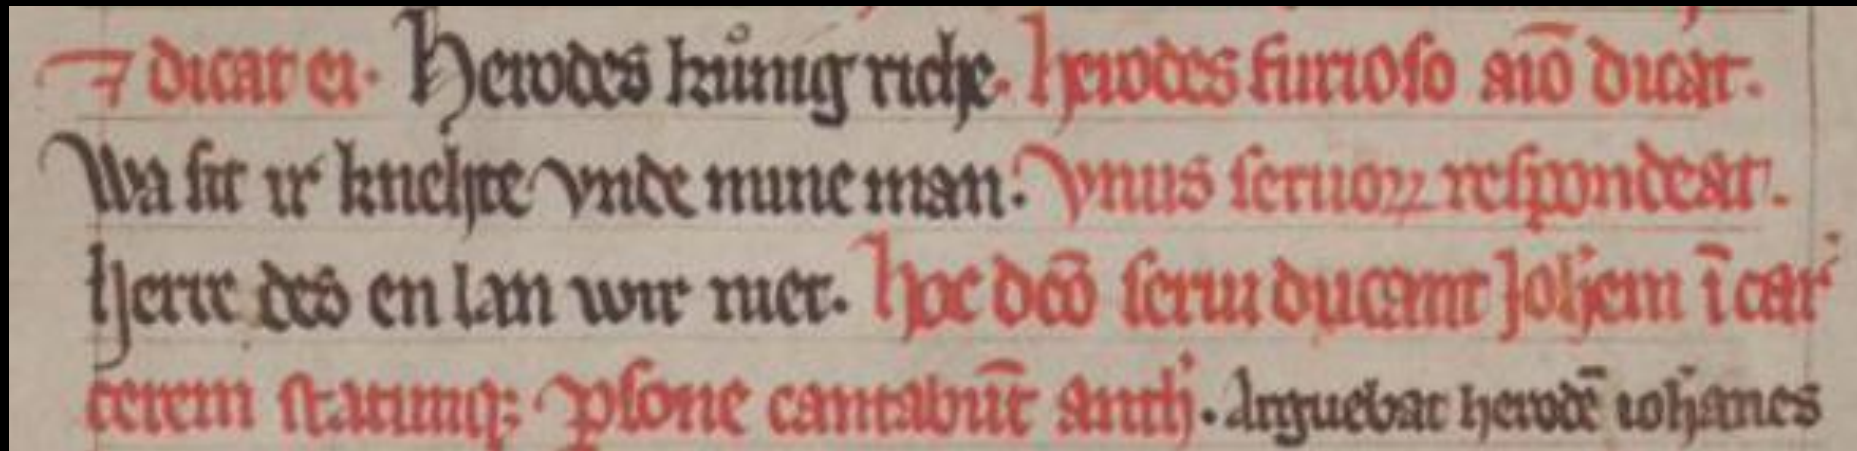 ⁊ dicat ei. Herodes kůnig riche. herodes furioso aīo dicat.
Wa sit ir knehte vnde mine man. Vnus seruoꝝ respondeat.
herre des en lan wir niet. hoc dc̄o serui ducant Joh̄em ī car
cerem statimq; ꝑsone cantabūt anth. Arguebat herodē ioh̄anes